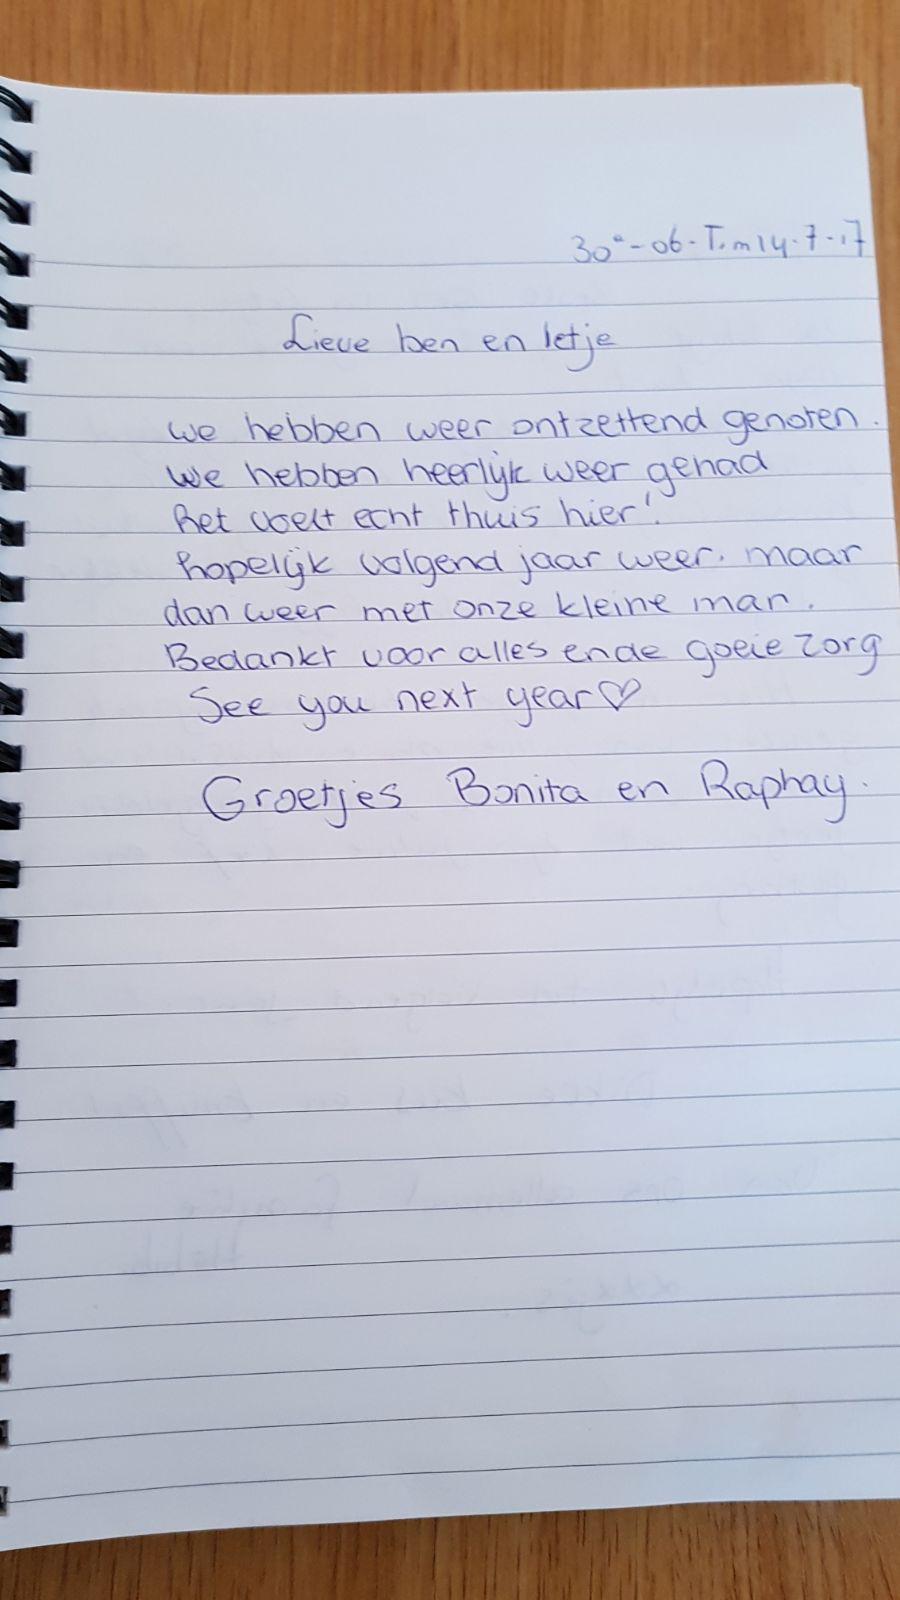 30e-06-T.m 14-7-17
Lieve ben en Ietje
we hebben weer ontzettend genoten.
we hebben heerlijk weer gehad
het voelt echt thuis hier!
hopelijk volgend jaar weer. maar
dan weer met onze kleine man.
Bedankt voor alles en de goeie zorg
See you next year♡
Groetjes Bonita en Raphay.